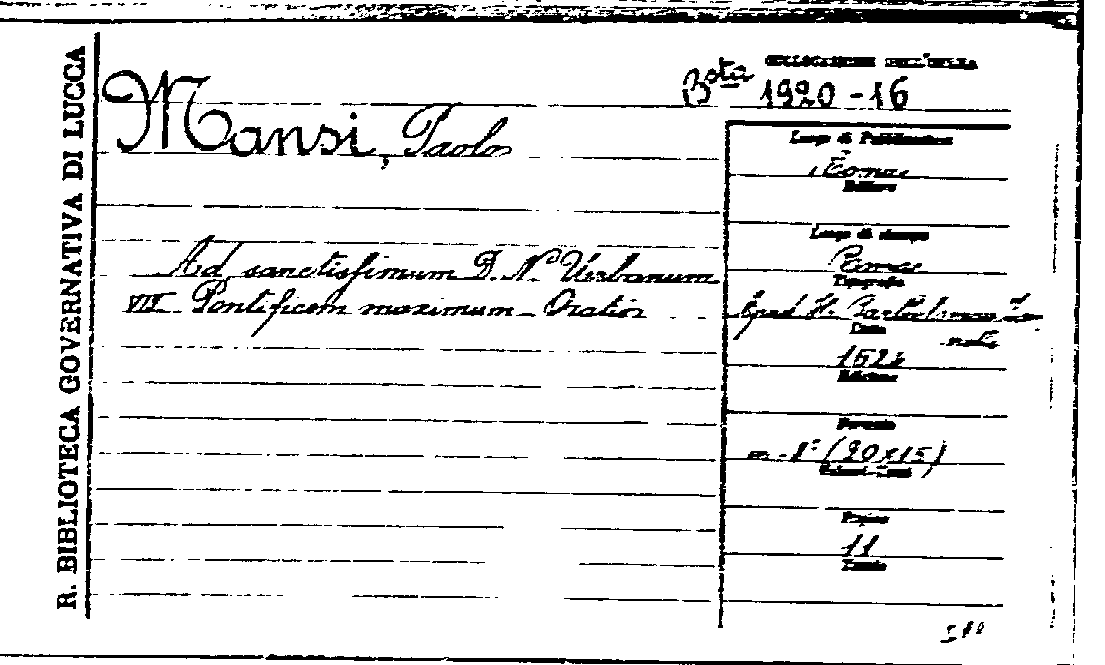 R. BIBLIOTECA GOVERNATIVA DI LUCCA
COLLOCAZIONE DELL'OPERA
Bsta 1920-16
Mansi, Paolo
Ad sanctissimum D. N. Urbanum
VIII Pontificem maximum - Oratio
Luogo di Pubblicazione
Roma
Editore
Luogo di stampa
Roma
Tipografia
Apud H.
Data
Edizione
Formato
in-8° (20x15)
Volumi
Pagine
11
Tavole